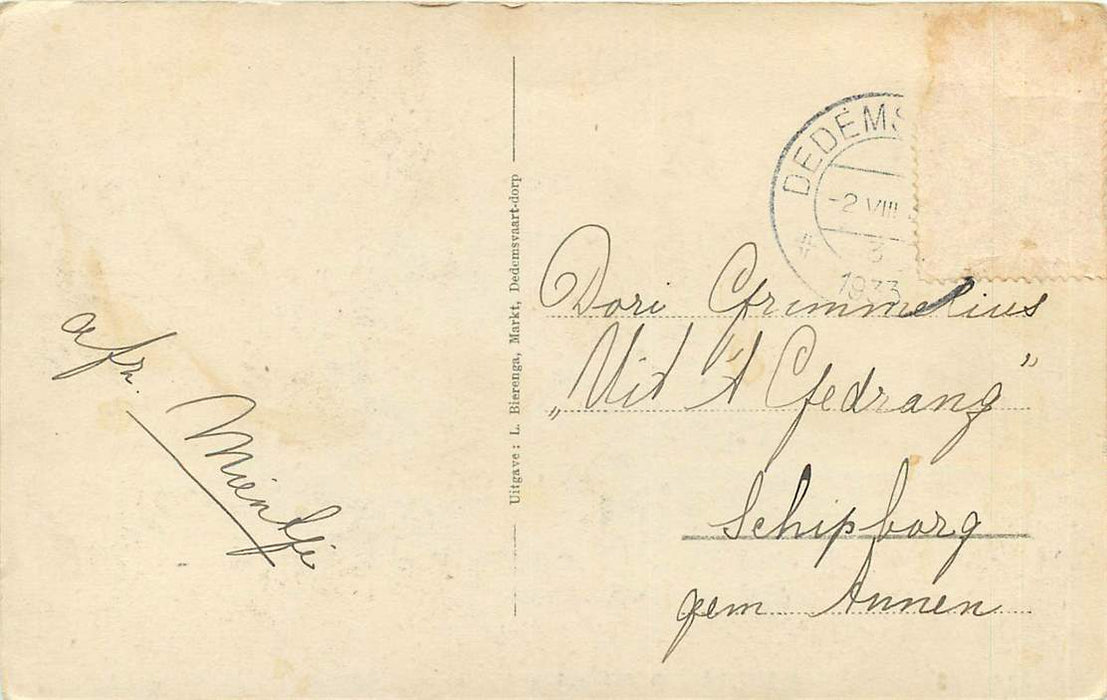 afz. Mientje
Uitgave : L. Bierenga, Markt, Dedemsvaart-dorp
DEDEMS
-2 VIII
3
1933
Dori Grimmelius
„Uit 't Gedrang"
Schipborg
gem Annen